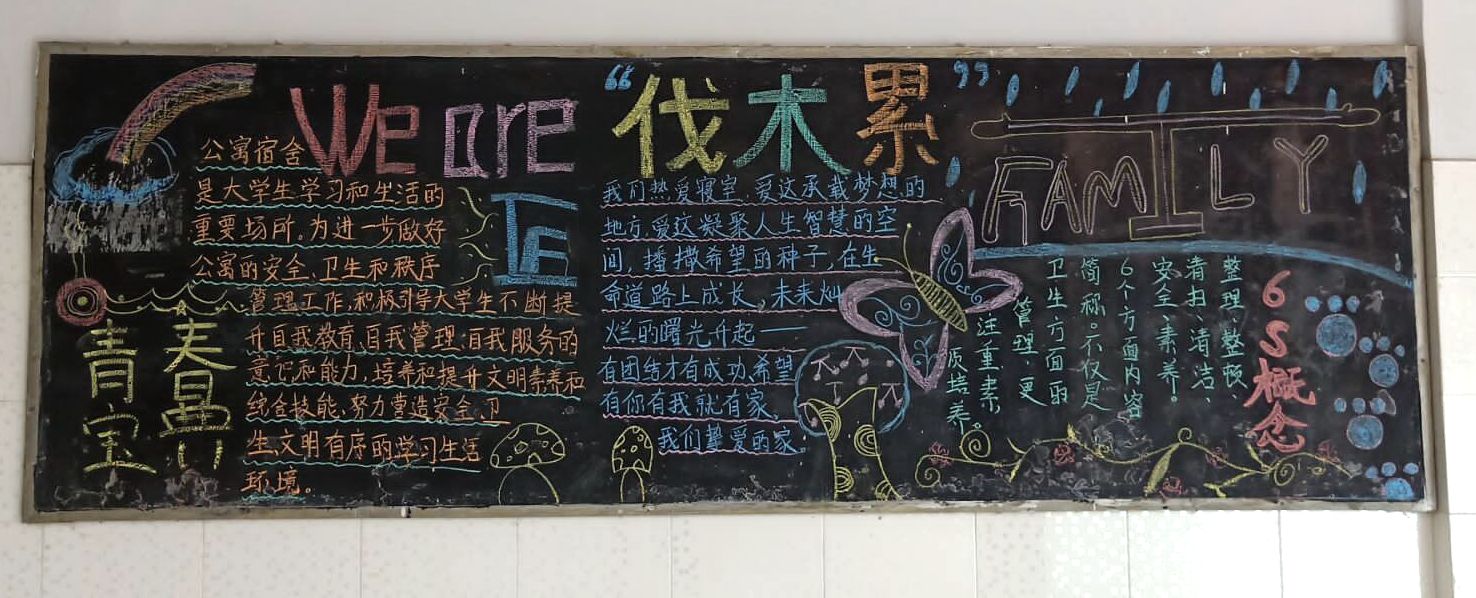 We are “伐木累”
FAMILY
公寓宿舍
是大学生学习和生活的
重要场所。为进一步做好
公寓的安全、卫生和秩序
管理工作,积极引导大学生不断提
升自我教育、自我管理、自我服务的
意识和能力,培养和提升文明素养和
综合技能,努力营造安全、卫
生、文明有序的学习生活
环境。
青春
宝
我们热爱寝室,爱这承载梦想的
地方,爱这凝聚人生智慧的空
间,播撒希望的种子,在生
命道路上成长,未来灿
烂的曙光升起——
有团结才有成功、希望
有你有我就有家,
我们挚爱的家。
6S概念
整理、整顿、
清扫、清洁、
安全、素养。
6个方面内容
简称。不仅是
卫生方面的
管理,更
注重素
质培养。